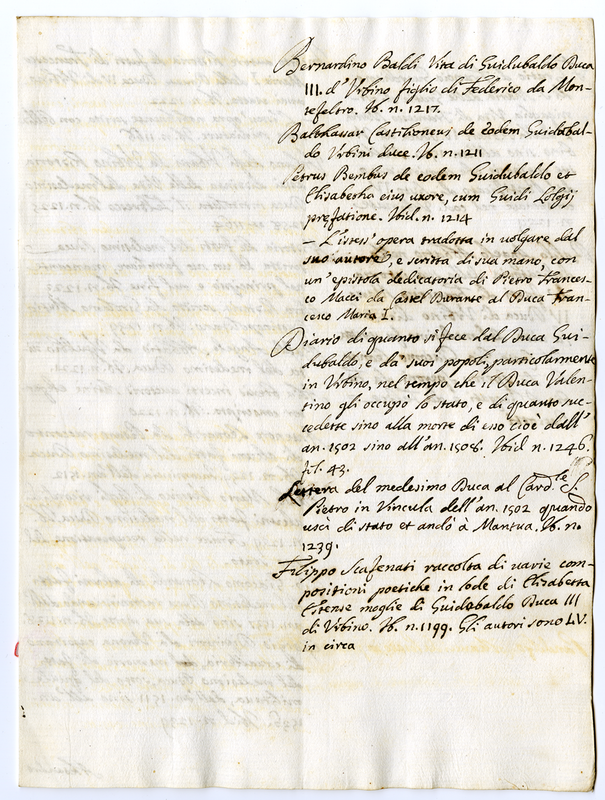 Bernardino Baldi Vita di Guidubaldo Duca
III. d'Urbino figlio di Federico da Mon-
tefeltro. Ib. n. 1217.
Balthassar Castilioneus de eodem Guidobal-
do Urbini duce. Ib. n. 1211
Petrus Bembus de eodem Guidubaldo et
Elisabetha eius uxore, cum Guidi
prefatione. Ibid. n. 1214
– L'istess'opera tradotta in volgare dal
suo autore, e scritta di sua mano, con
un'epistola dedicatoria di Pietro Frances-
co Macci da Castel Durante al Duca Fran-
cesco Maria I.
Diario di quanto si fece dal Duca Gui-
dubaldo, e da suoi popoli, particolarmente
in Urbino, nel tempo che il Duca Valen-
tino gli occupò lo stato, e di quanto suc-
cedette sino alla morte di esso cioè dall'
an. 1502 sino all'an. 1508. Ibid n. 1246.
fol. 43.
Lettera del medesimo Duca al Card.le S.
Pietro in Vincula dell'an. 1502 quando
uscì di stato et andò à Mantua. Ib. no
1239.
Filippo Scafenati raccolta di varie com-
positioni poetiche in lode di Elisabetta
Estense moglie di Guidobaldo Duca III
di Urbino. Ib. n. 1199. Gli autori sono LV.
in circa